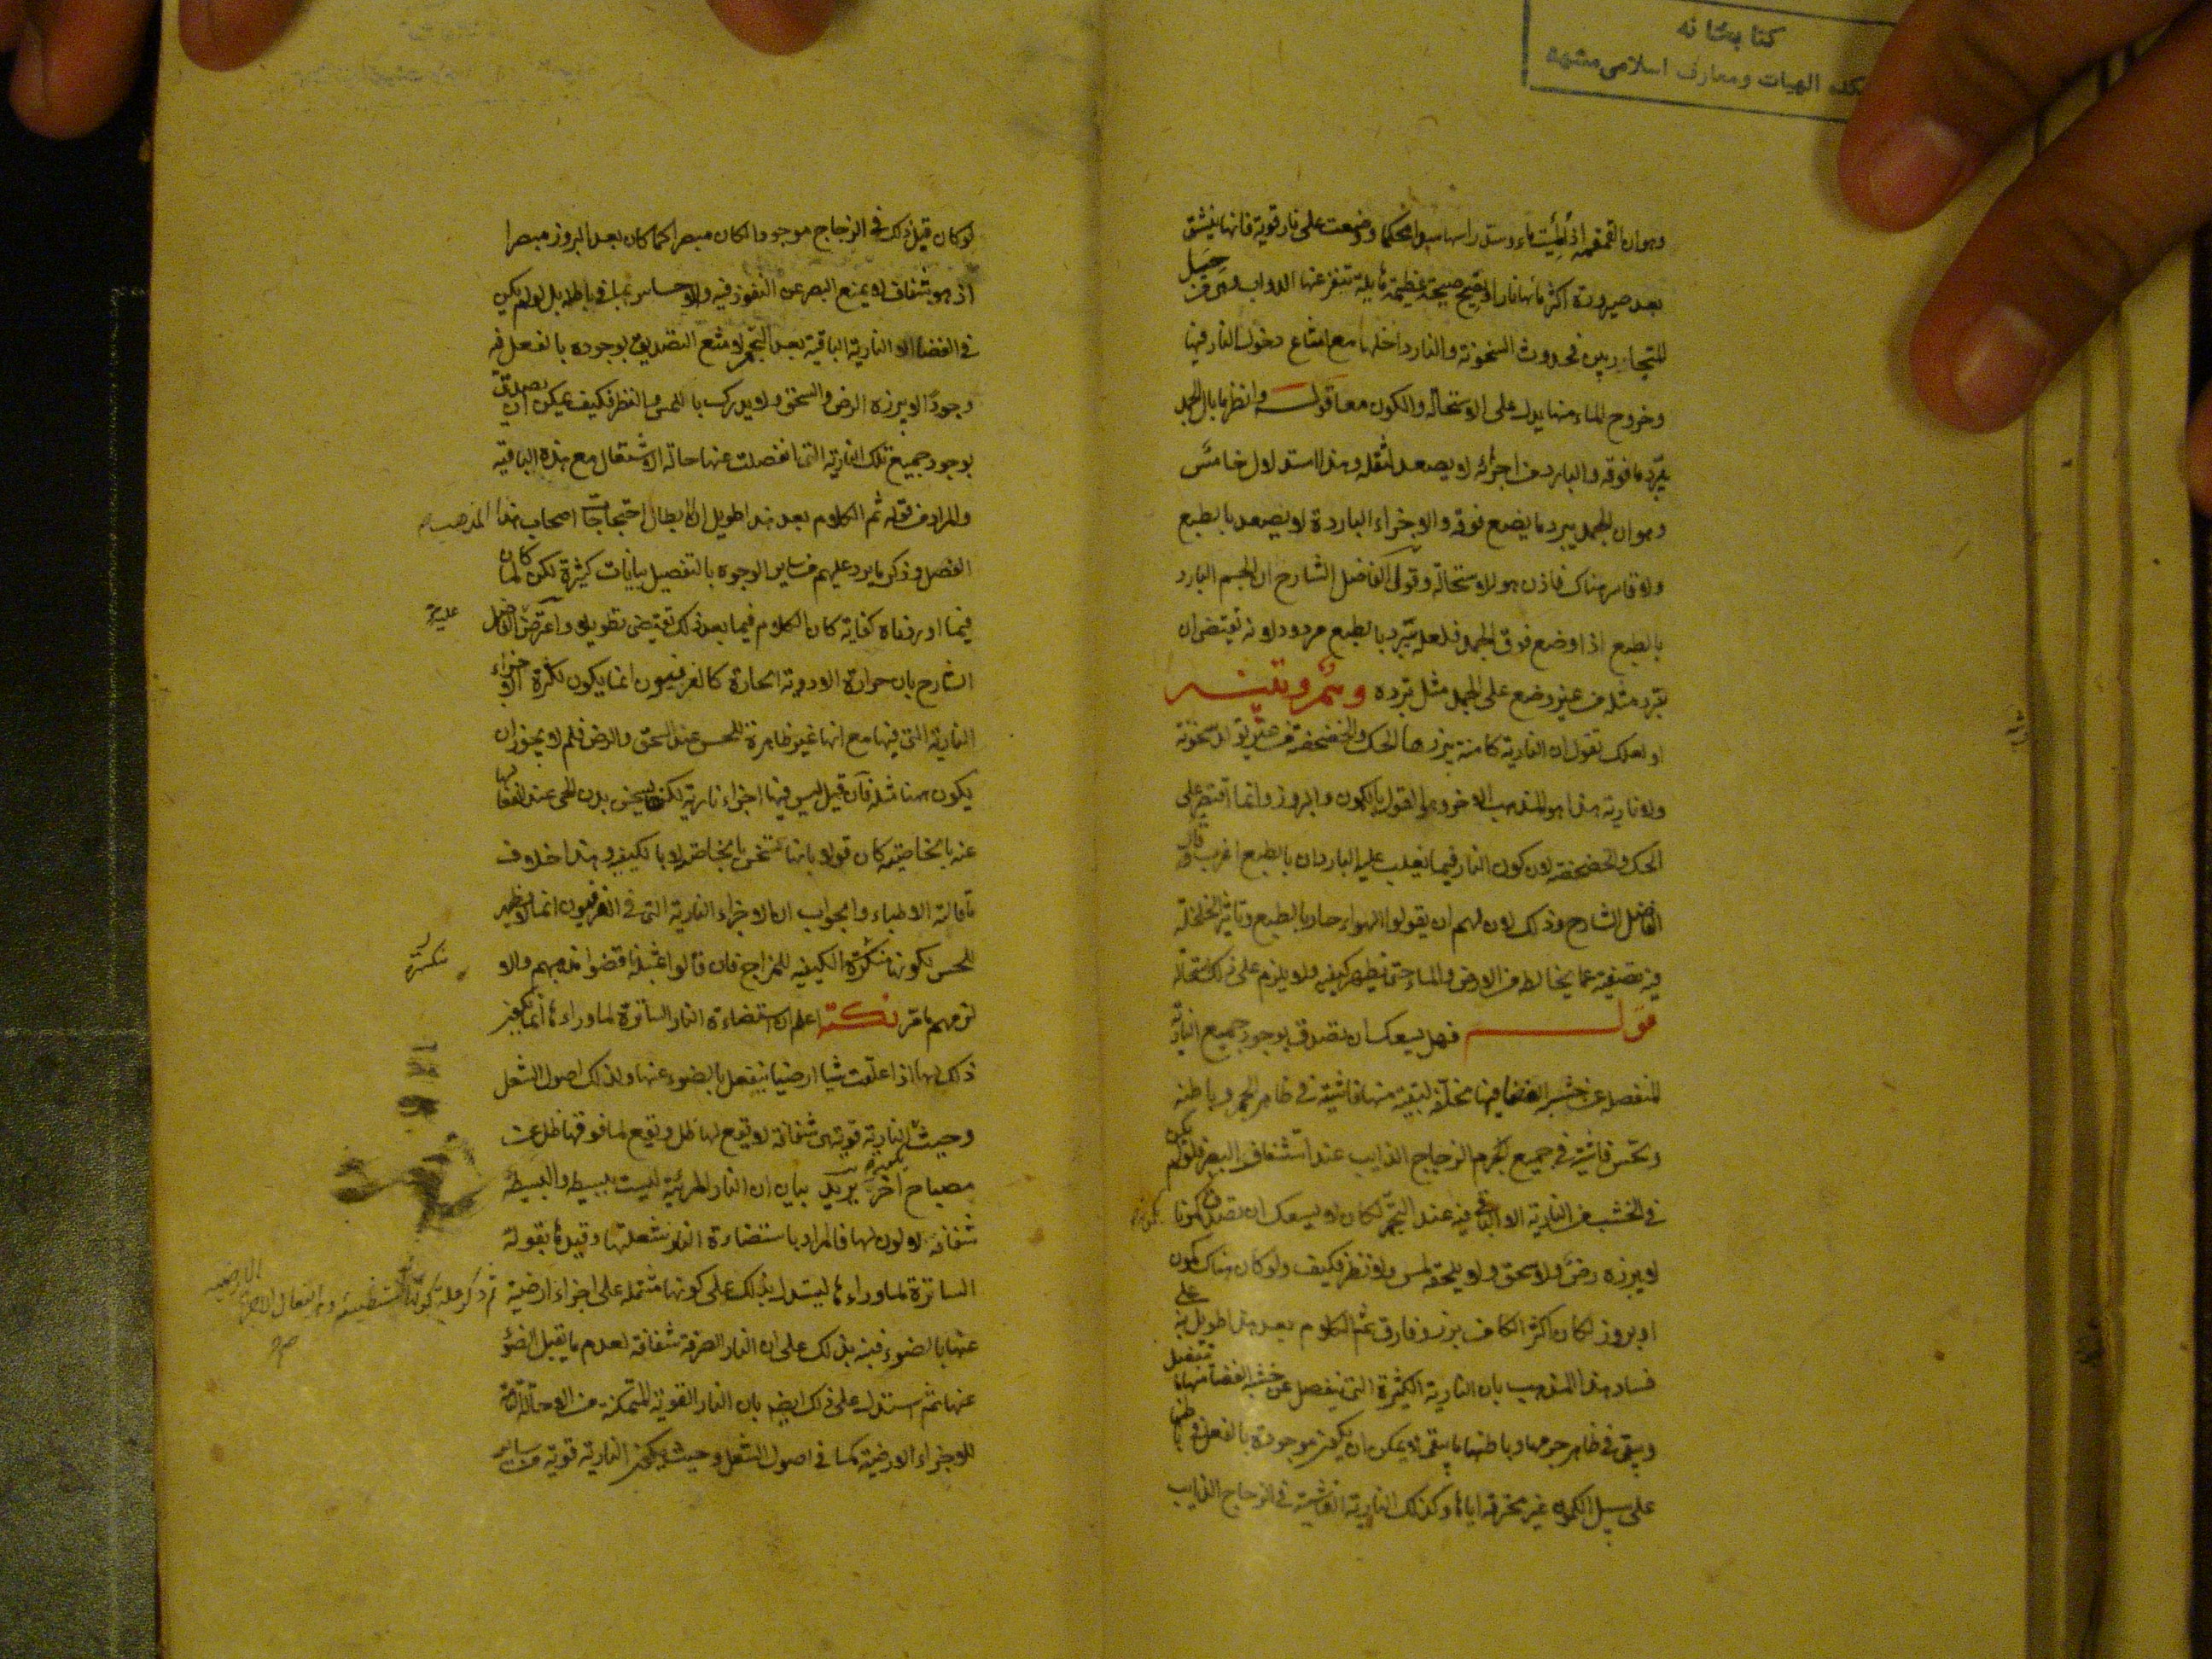 كتابخانه
دانشكده الهيات ومعارف اسلامى مشهد
وهو ان القمقمة اذا مُلِئَت ماء وسد راسها سدا محكما ووضعت على نار قوية فانها ينشق
بعد صيرورة اكثر مائها نارا وتصيح صيحة عظيمة هايلة تنفر عنها الدواب
فحدوث السخونة والنار داخلها مع امتناع دخول النار فيها
وخروج الماء منها يدل على الاستحالة والكون معا قوله وانظر ما بال الجمد
يبرد ما فوقه والبارد من اجزائه لا يصعد لثقله وهذا استدلال خامس
وهو ان الجمد يبرد ما يضع فوقه والاجزاء الباردة لا يصعد بالطبع
ولا قاسر هناك فاذن هو للاستحالة وقول الفاضل الشارح ان الجسم البارد
بالطبع اذا وضع فوق الجمد فلعله تبرد بالطبع مردود لانه يقتضى ان
تبرد مثله من غير وضع على الجمد مثل تبرده وهم وتنبيه
او لعلك تقول ان النارية كامنة يبرزها الحك والخضخضة من غير تولد سخونة
ولا نارية هذا هو المذهب الاخر وهو القول بالكمون والبروز وانما اقتصر على
الحك والخضخضة لان كون النار فيما يغلب عليه الباردان بالطبع اغرب قال
الفاضل الشارح وذلك لان لهم ان يقولوا الهواء حار بالطبع وتاثير الخلخلة
فيه تصفيته عما يخالطه من الارض والماء حتى يظهر كيفيته ولا يلزم على ذلك استحالة
قوله فهل يسعك ان تصدق بوجود جميع النارية
المنفصل عن خشب الغضا فيها مخلفة لبقية منها فاشية فى ظاهر الجمر وباطنه
وتحس فاشية فى جميع جرم الزجاج الذايب عند استشفاف البصر فلو لم يكن
فى الخشب من النارية الا الباقى فيه عند التجمر لكان لا يسعك ان تصدق بكمونها
لا يبرزه رض ولا سحق ولا يلحقه لمس ولا نظر فكيف ولو كان هناك كمون
او بروز لكان اكثر الكامن برز وفارق ثم الكلام بعد هذا طويل نبه على
فساد هذا المذهب بان النارية الكثيرة التى ينفصل عن خشبة الغضا منها ما تنفصل
ويبقى فى ظاهر جرمها وباطنها ما يبقى لا يمكن ان يكون موجودة بالفعل فى باطنها
على سبيل الكمون غير محرقة اياها وكذلك النارية الفاشية فى الزجاج الذايب
لو كان قبل ذلك فى الزجاج موجودا لكان مبصرا كما كان بعد البروز مبصرا
اذ هو شفاف لا يمنع البصر عن النفوذ فيه والاحساس بما فى باطنه بل لو لم يكن
فى الغضا الا النارية الباقية بعد التجمر لامتنع التصديق بوجوده بالفعل فيه
وجودا لا يبرزه الرض والسحق ولا يدرك باللمس والنظر فكيف يمكن ان يصدق
بوجود جميع تلك النارية التى انفصلت عنها حالة الاشتعال مع هذه الباقية
والمراد من قوله ثم الكلام بعد هذا طويل ان ابطال احتجاجات اصحاب هذا المذهب
الفصل وذكر ما يرد عليهم من ساير الوجوه بالتفصيل بيانات كثيرة لكن لما كان
فيما اوردناه كفاية كان الكلام فيما بعد ذلك يقتضى تطويلا واعترض الفاضل
عليه
الشارح بان حرارة الادوية الحارة كالفرفيون انما يكون لكثرة الاجزاء
النارية التى فيها مع انها غير ظاهرة للحس عند السحق والرض فلم لا يجوز ان
يكون هنا مثله فان قيل ليس فيها اجزاء نارية لكنها يسخن بدن الحى عند انفعالها
عنه بالخاصية كان قولا بانها تسخن بالخاصية لا بالكيفية وهذا خلاف
ما قالته الاطباء والجواب ان الاجزاء النارية التى فى الفرفيون انما لا يظهر
للحس لكونها منكسرة الكيفية للمزاج فان قالوا بمثله ناقضوا مذهبهم والا
لزمهم ما مر نكتة اعلم ان استضاءة النار الساترة لما وراءها انما يكون
ذلك لها اذا علقت شيئا ارضيا ينفعل بالضوء عنها ولذلك اصول الشعل
وحيث النارية قوية هى شفافة لا يقع لها ظل ويقع لما فوقها ظل عن
مصباح اخر يريد بيان ان النار المرئية ليست ببسيطة والبسيطة
شفافة لا لون لها فالمراد باستضاءة النار شعلتها وقيدها بقوله
الساترة لما وراءها ليستدل بذلك على كونها مشتملة على اجزاء ارضية
عنها بالضوء فنبه بذلك على ان النار الصرفة شفافة لعدم ما يقبل الضوء
عنها ثم استدل على ذلك ايضا بان النار القوية المتمكنة من الاحالة التامة
للاجزاء الارضية كما فى اصول الشعل وحيث يكون النارية قوية من ساير